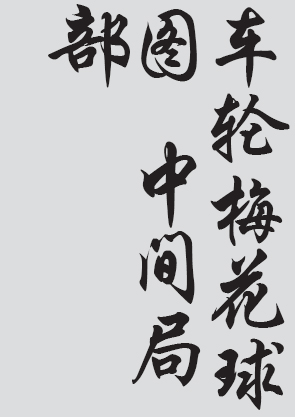 车轮梅花球
图 中间局
部